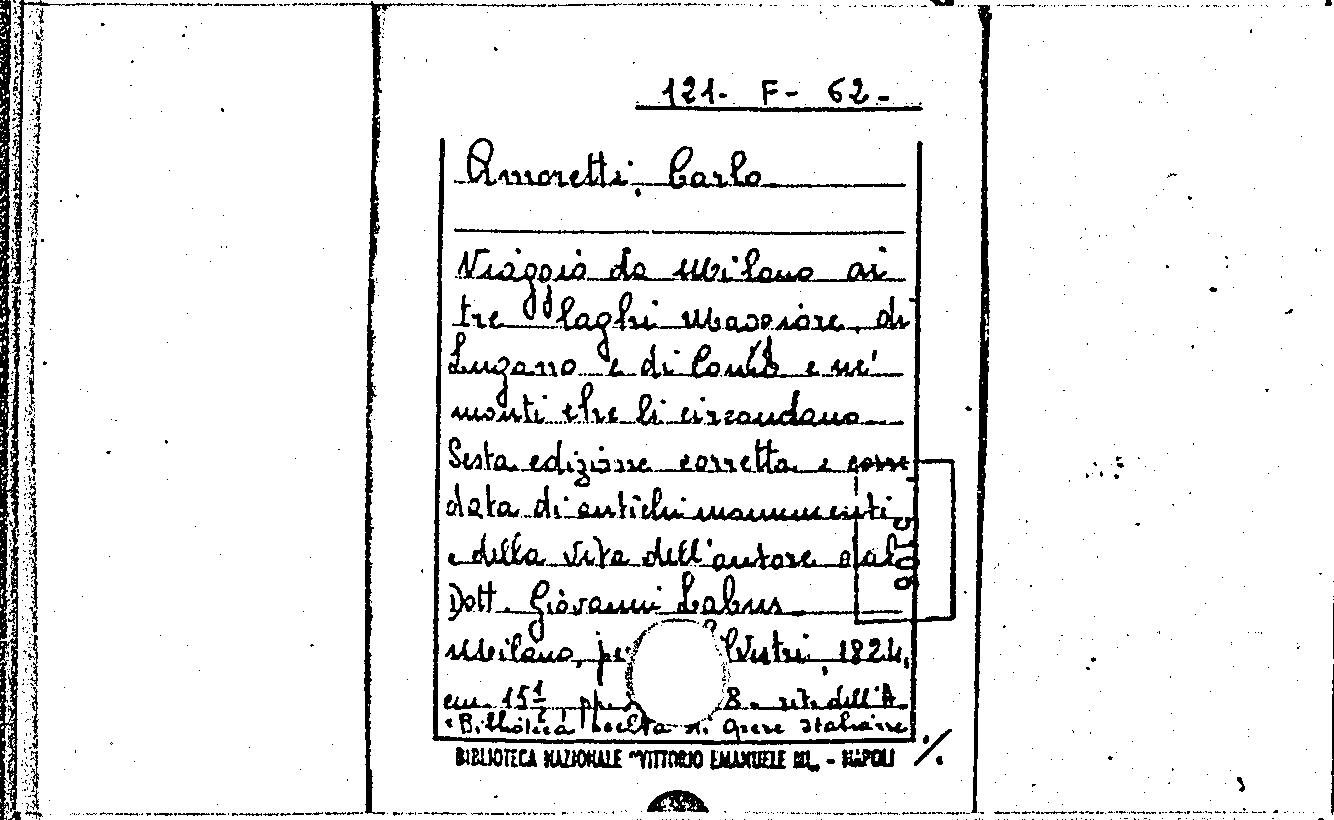 121- F- 62-
Amoretti, Carlo
Viaggio da Milano ai
tre laghi Maggiore, di
Lugano e di Como e ne'
monti che li circondano
Sesta edizione corretta e corre
data di antichi monumenti
e della vita dell'autore dal
Dott. Giovanni Labus
Milano, 1824,
cm. 15½, pp. 8. rit. dell'A.
"Biblioteca scelta di Opere italiane
BIBLIOTECA NAZIONALE "VITTORIO EMANUELE III„ - NAPOLI ./.